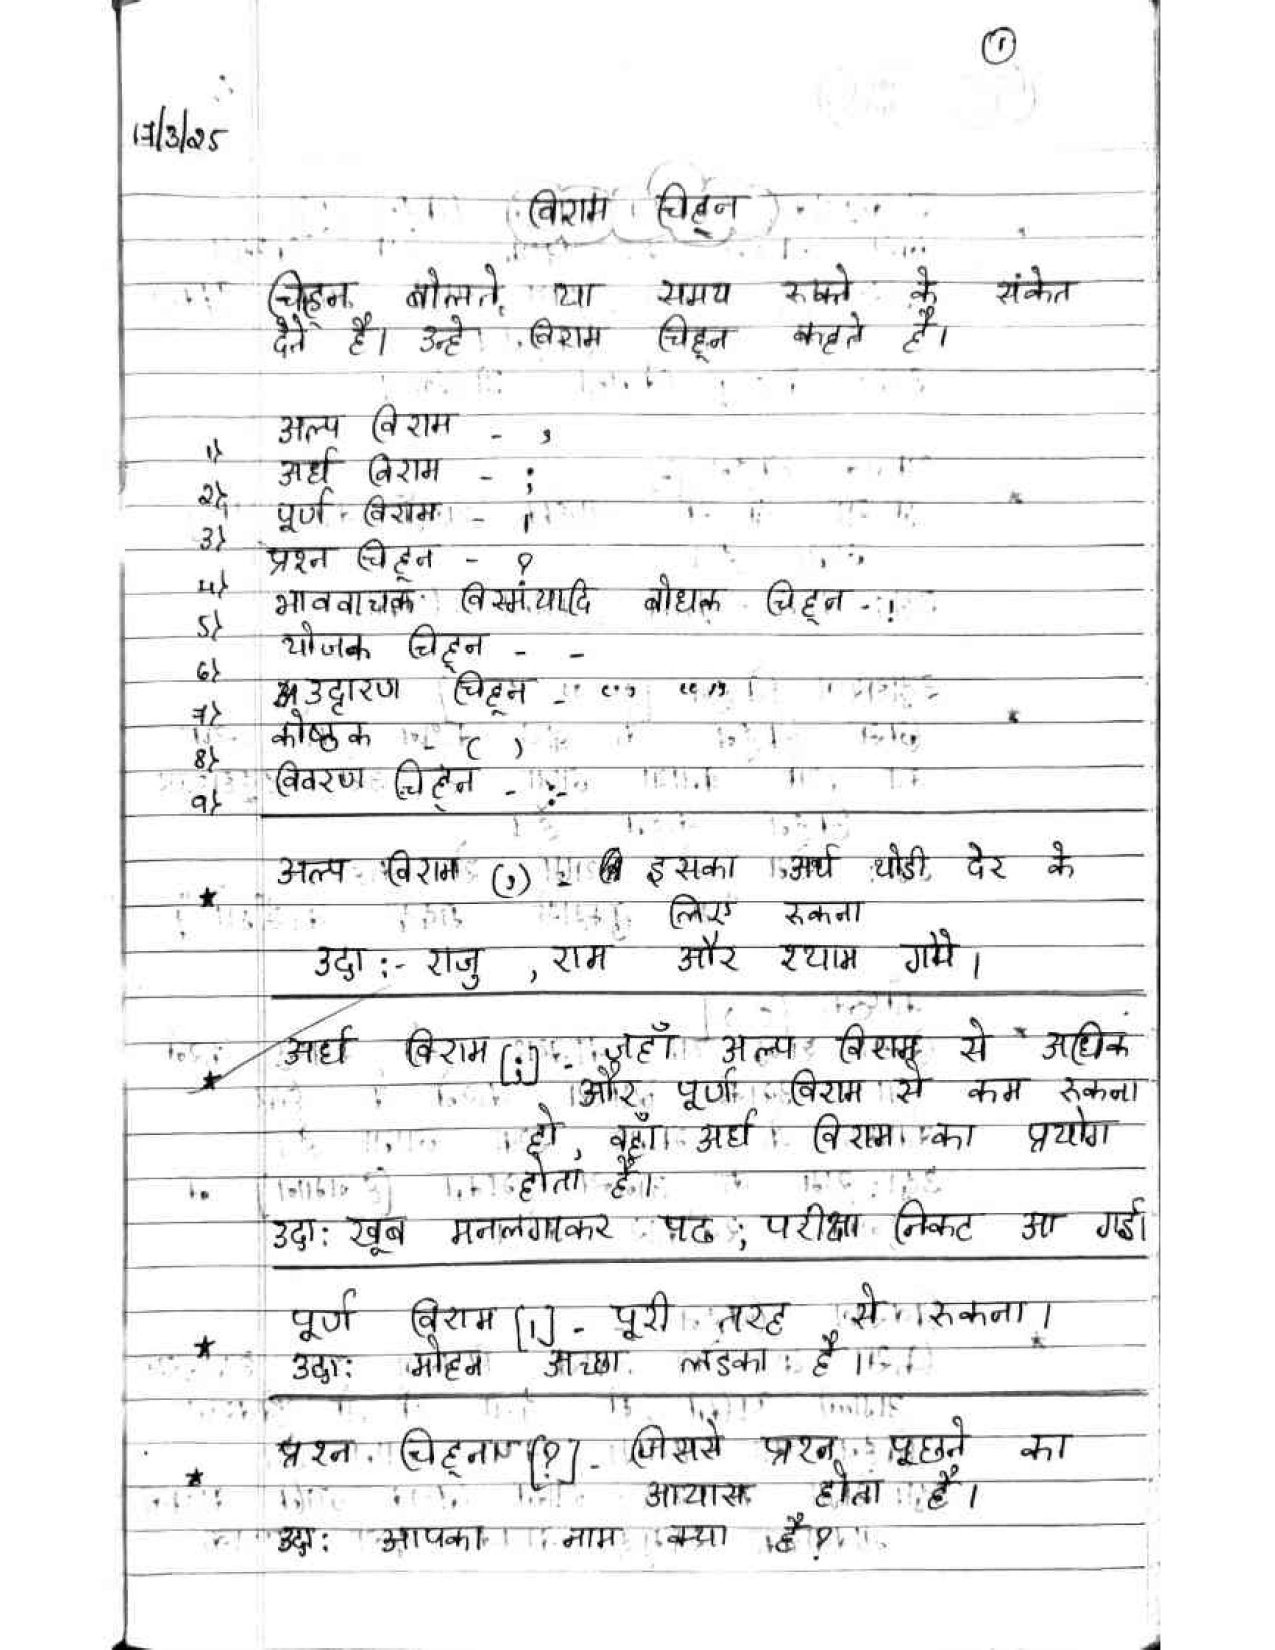 1
17/3/25
विराम चिह्न
चिह्न बोलते या समय रुकते के संकेत
देते है। उन्हे विराम चिह्न कहते है।
1) अल्प विराम - ,
2) अर्ध विराम - ;
3) पूर्ण विराम - ।
4) प्रश्न चिह्न - ?
5) भाववाचक विस्मंयादि बोधक चिह्न - !
6) योजक चिह्न - -
7) उद्दारण चिह्न - ' ' " "
8) कोष्ठक - ( )
9) विवरण चिह्न - :-
★ अल्प विराम (,) - इसका अर्थ थोडी देर के
लिए रुकना
उदा :- राजु , राम और श्याम गये।
★ अर्ध विराम [;] - जहाँ अल्प विराम से अधिक
और पूर्ण विराम से कम रुकना
हो , वहाँ अर्ध विराम का प्रयोग
होता है।
उदा: खूब मनलगाकर पढ ; परीक्षा निकट आ गई।
★ पूर्ण विराम [।] - पूरी तरह से रुकना।
उदा: मोहन अच्छा लडका है।
★ प्रश्न चिह्न [?] - जिससे प्रश्न पूछने का
आयास होता है।
उदा: आपका नाम क्या है?